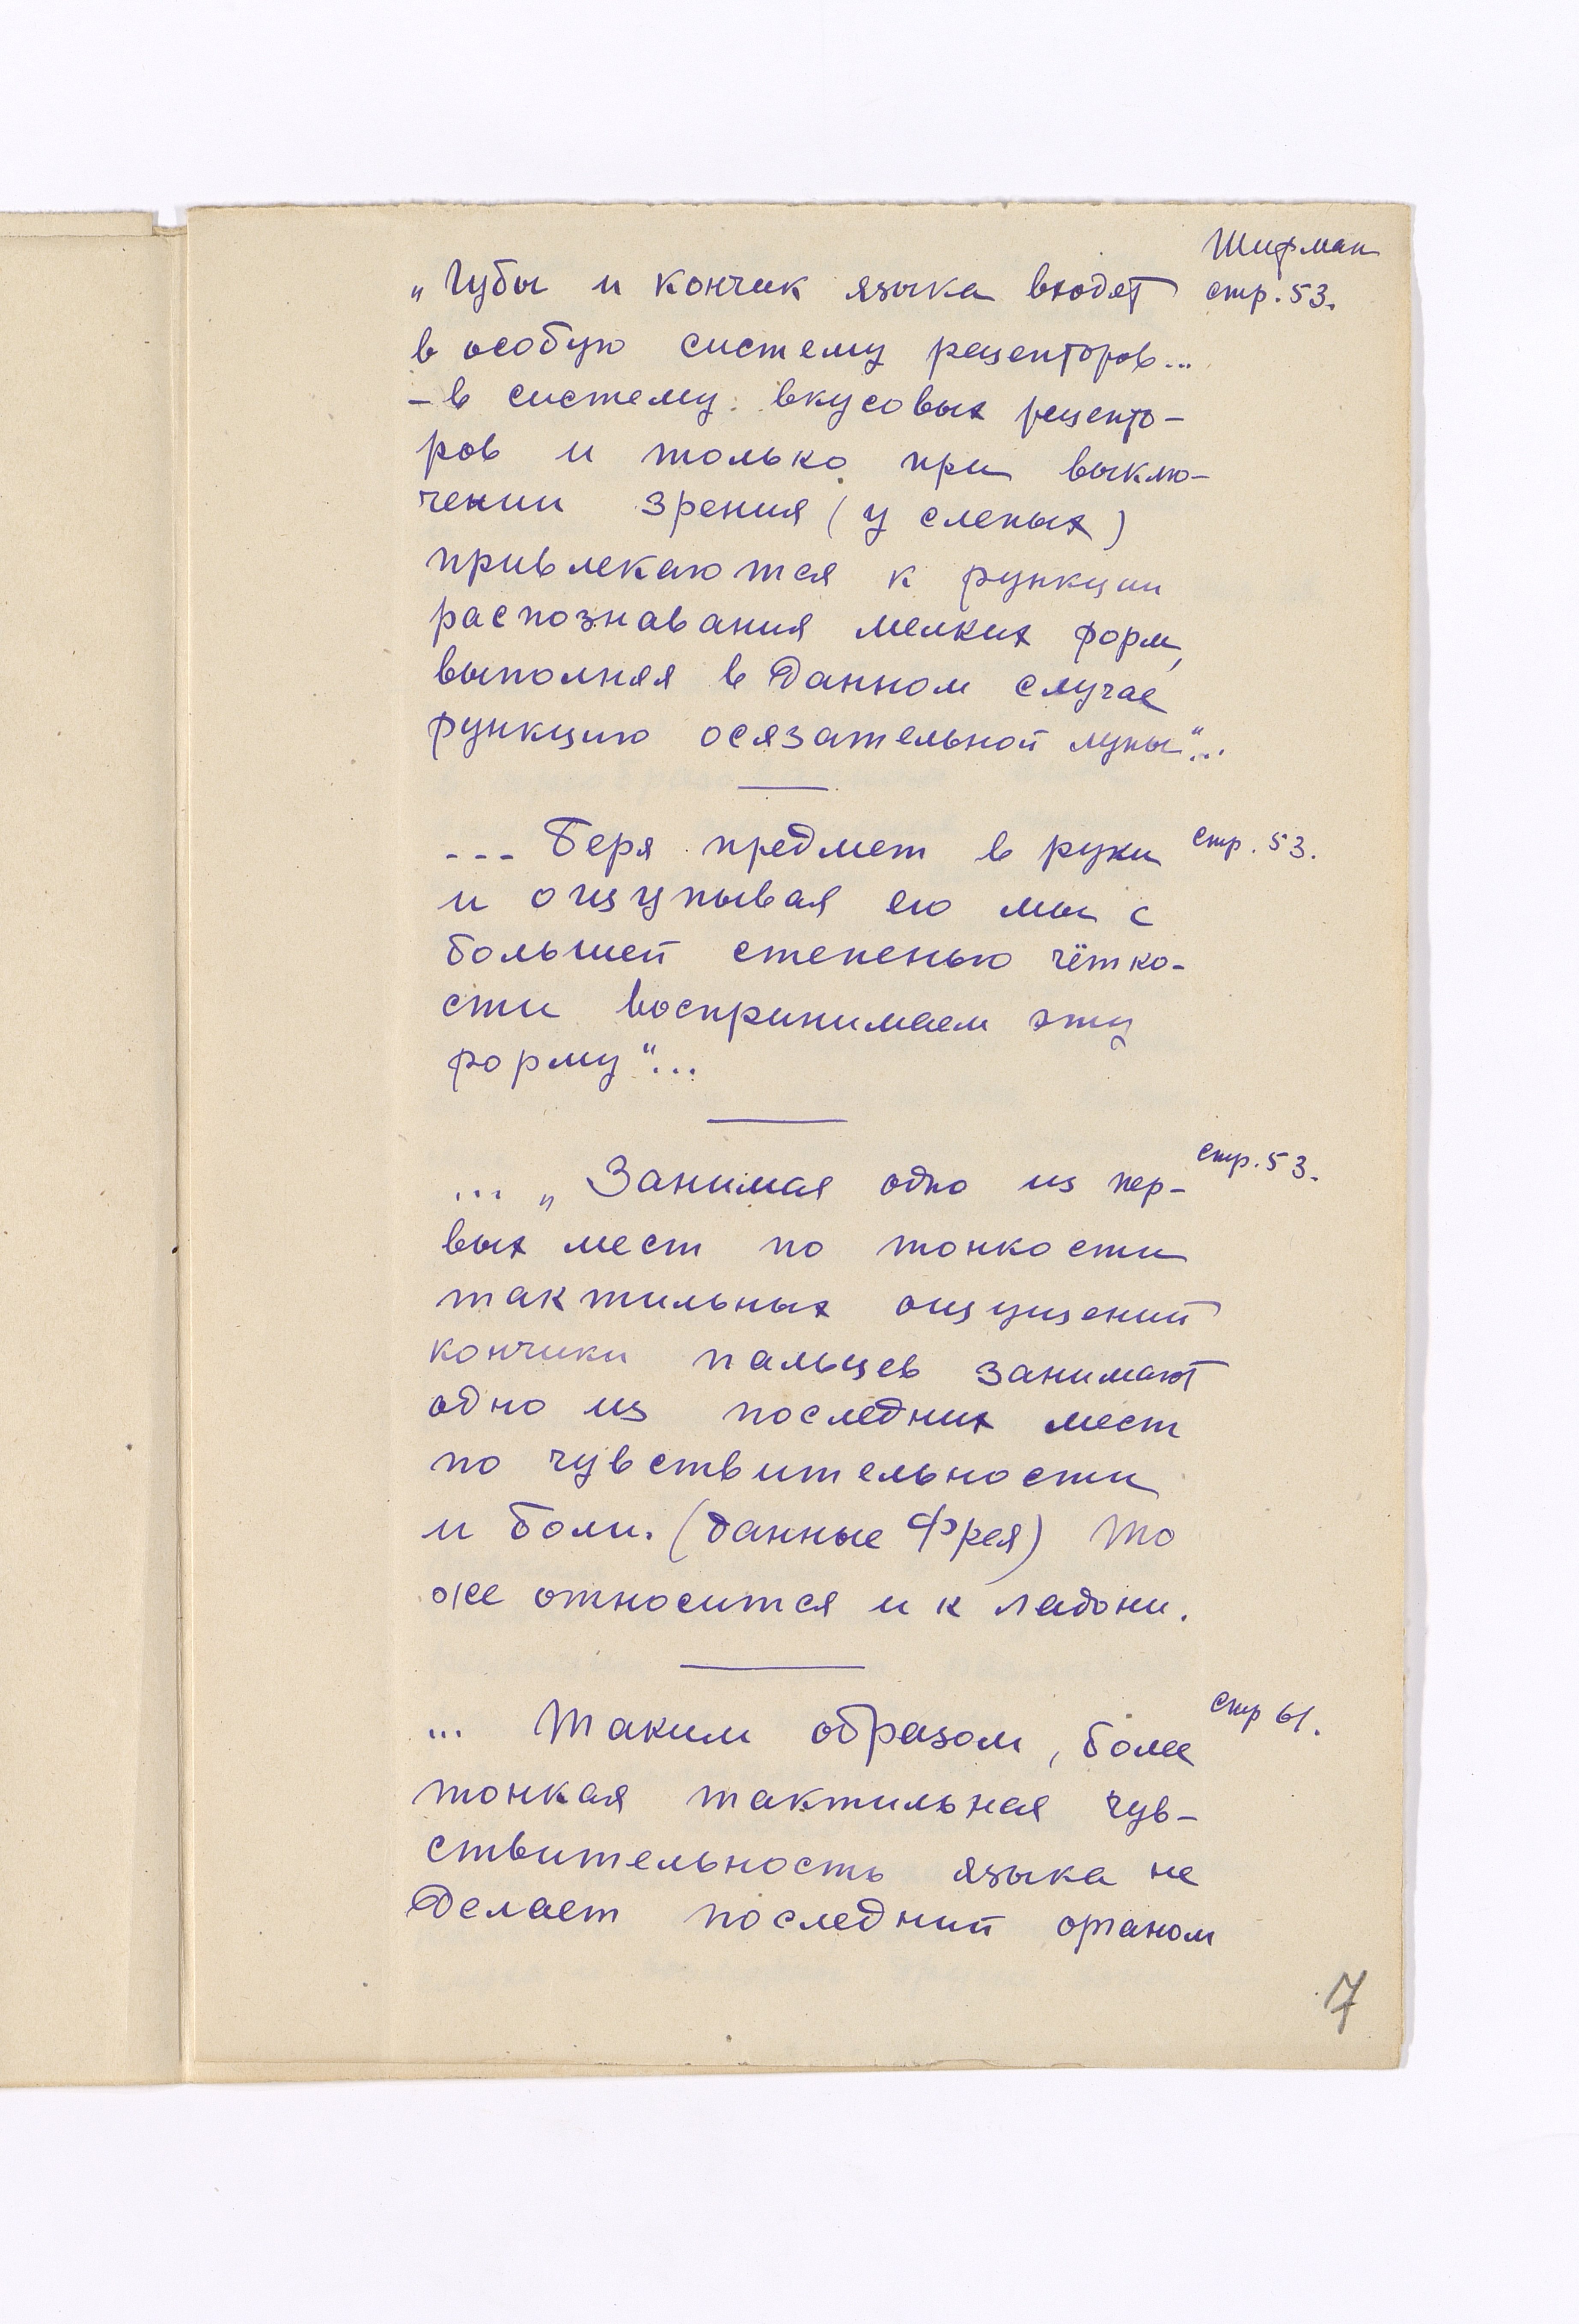 Шифман
„Губы и кончик языка входят стр. 53.
в особую систему рецепторов...
– в систему вкусовых рецепто-
ров и только при выклю-
чении зрения (у слепых)
привлекаются к функции
распознавания мелких форм,
выполняя в данном случае
функцию осязательной лупы“...
--- Беря предмет в руки стр. 53.
и ощупывая его мы с
большей степенью чётко-
сти воспринимаем эту
форму“...
стр. 53.
... „Занимая одно из пер-
вых мест по тонкости
тактильных ощущений
кончики пальцев занимают
одно из последних мест
по чувствительности
и боли. (данные Фрея) То
же относится и к ладони.
стр 61.
... Таким образом, более
тонкая тактильная чув-
ствительность языка не
делает последний органом
7